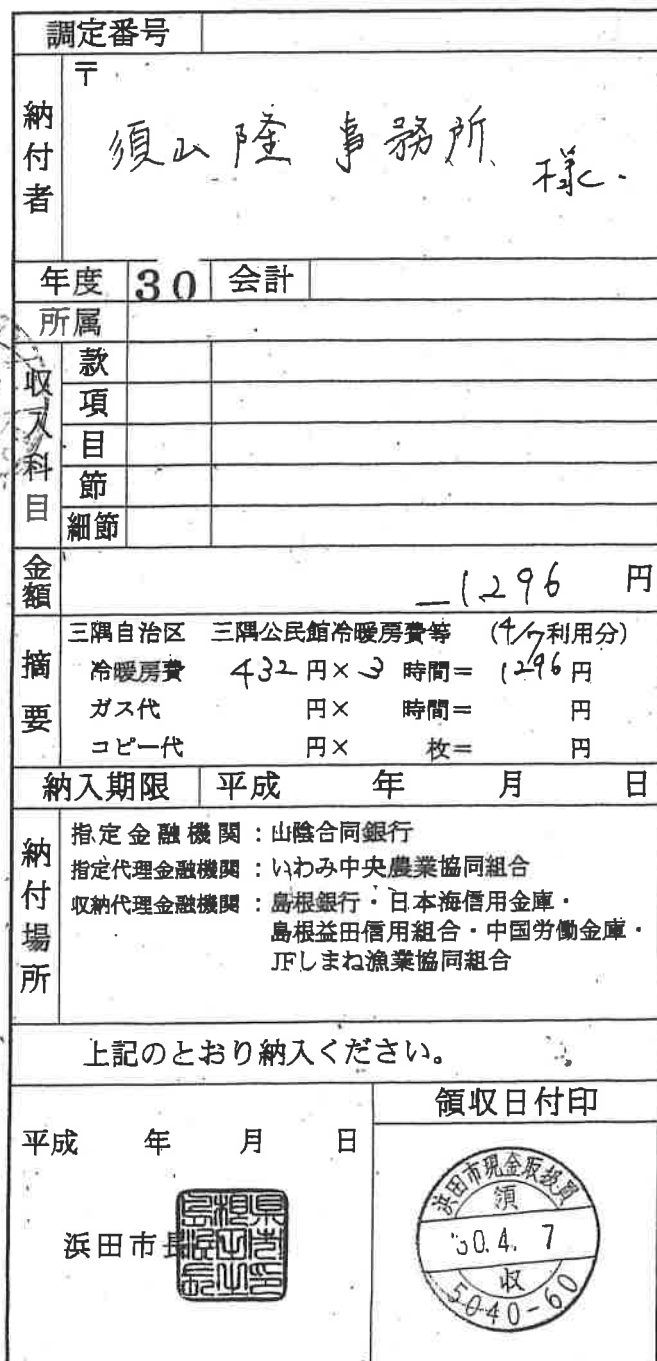 調定番号
納付者
〒
須山隆 事務所 様
年度 30 会計
所属
収入科目
款
項
目
節
細節
金額 1,296 円
摘要
三隅自治区 三隅公民館冷暖房費等 (4/7利用分)
冷暖房費 432円×3 時間= 1296円
ガス代 円× 時間= 円
コピー代 円× 枚= 円
納入期限 平成 年 月 日
納付場所
指定金融機関:山陰合同銀行
指定代理金融機関:いわみ中央農業協同組合
収納代理金融機関:島根銀行・日本海信用金庫・
島根益田信用組合・中国労働金庫・
JFしまね漁業協同組合
上記のとおり納入ください。
領収日付印
平成 年 月 日
浜田市長
浜田市現金取扱員
領
30.4.7
収
5040-60